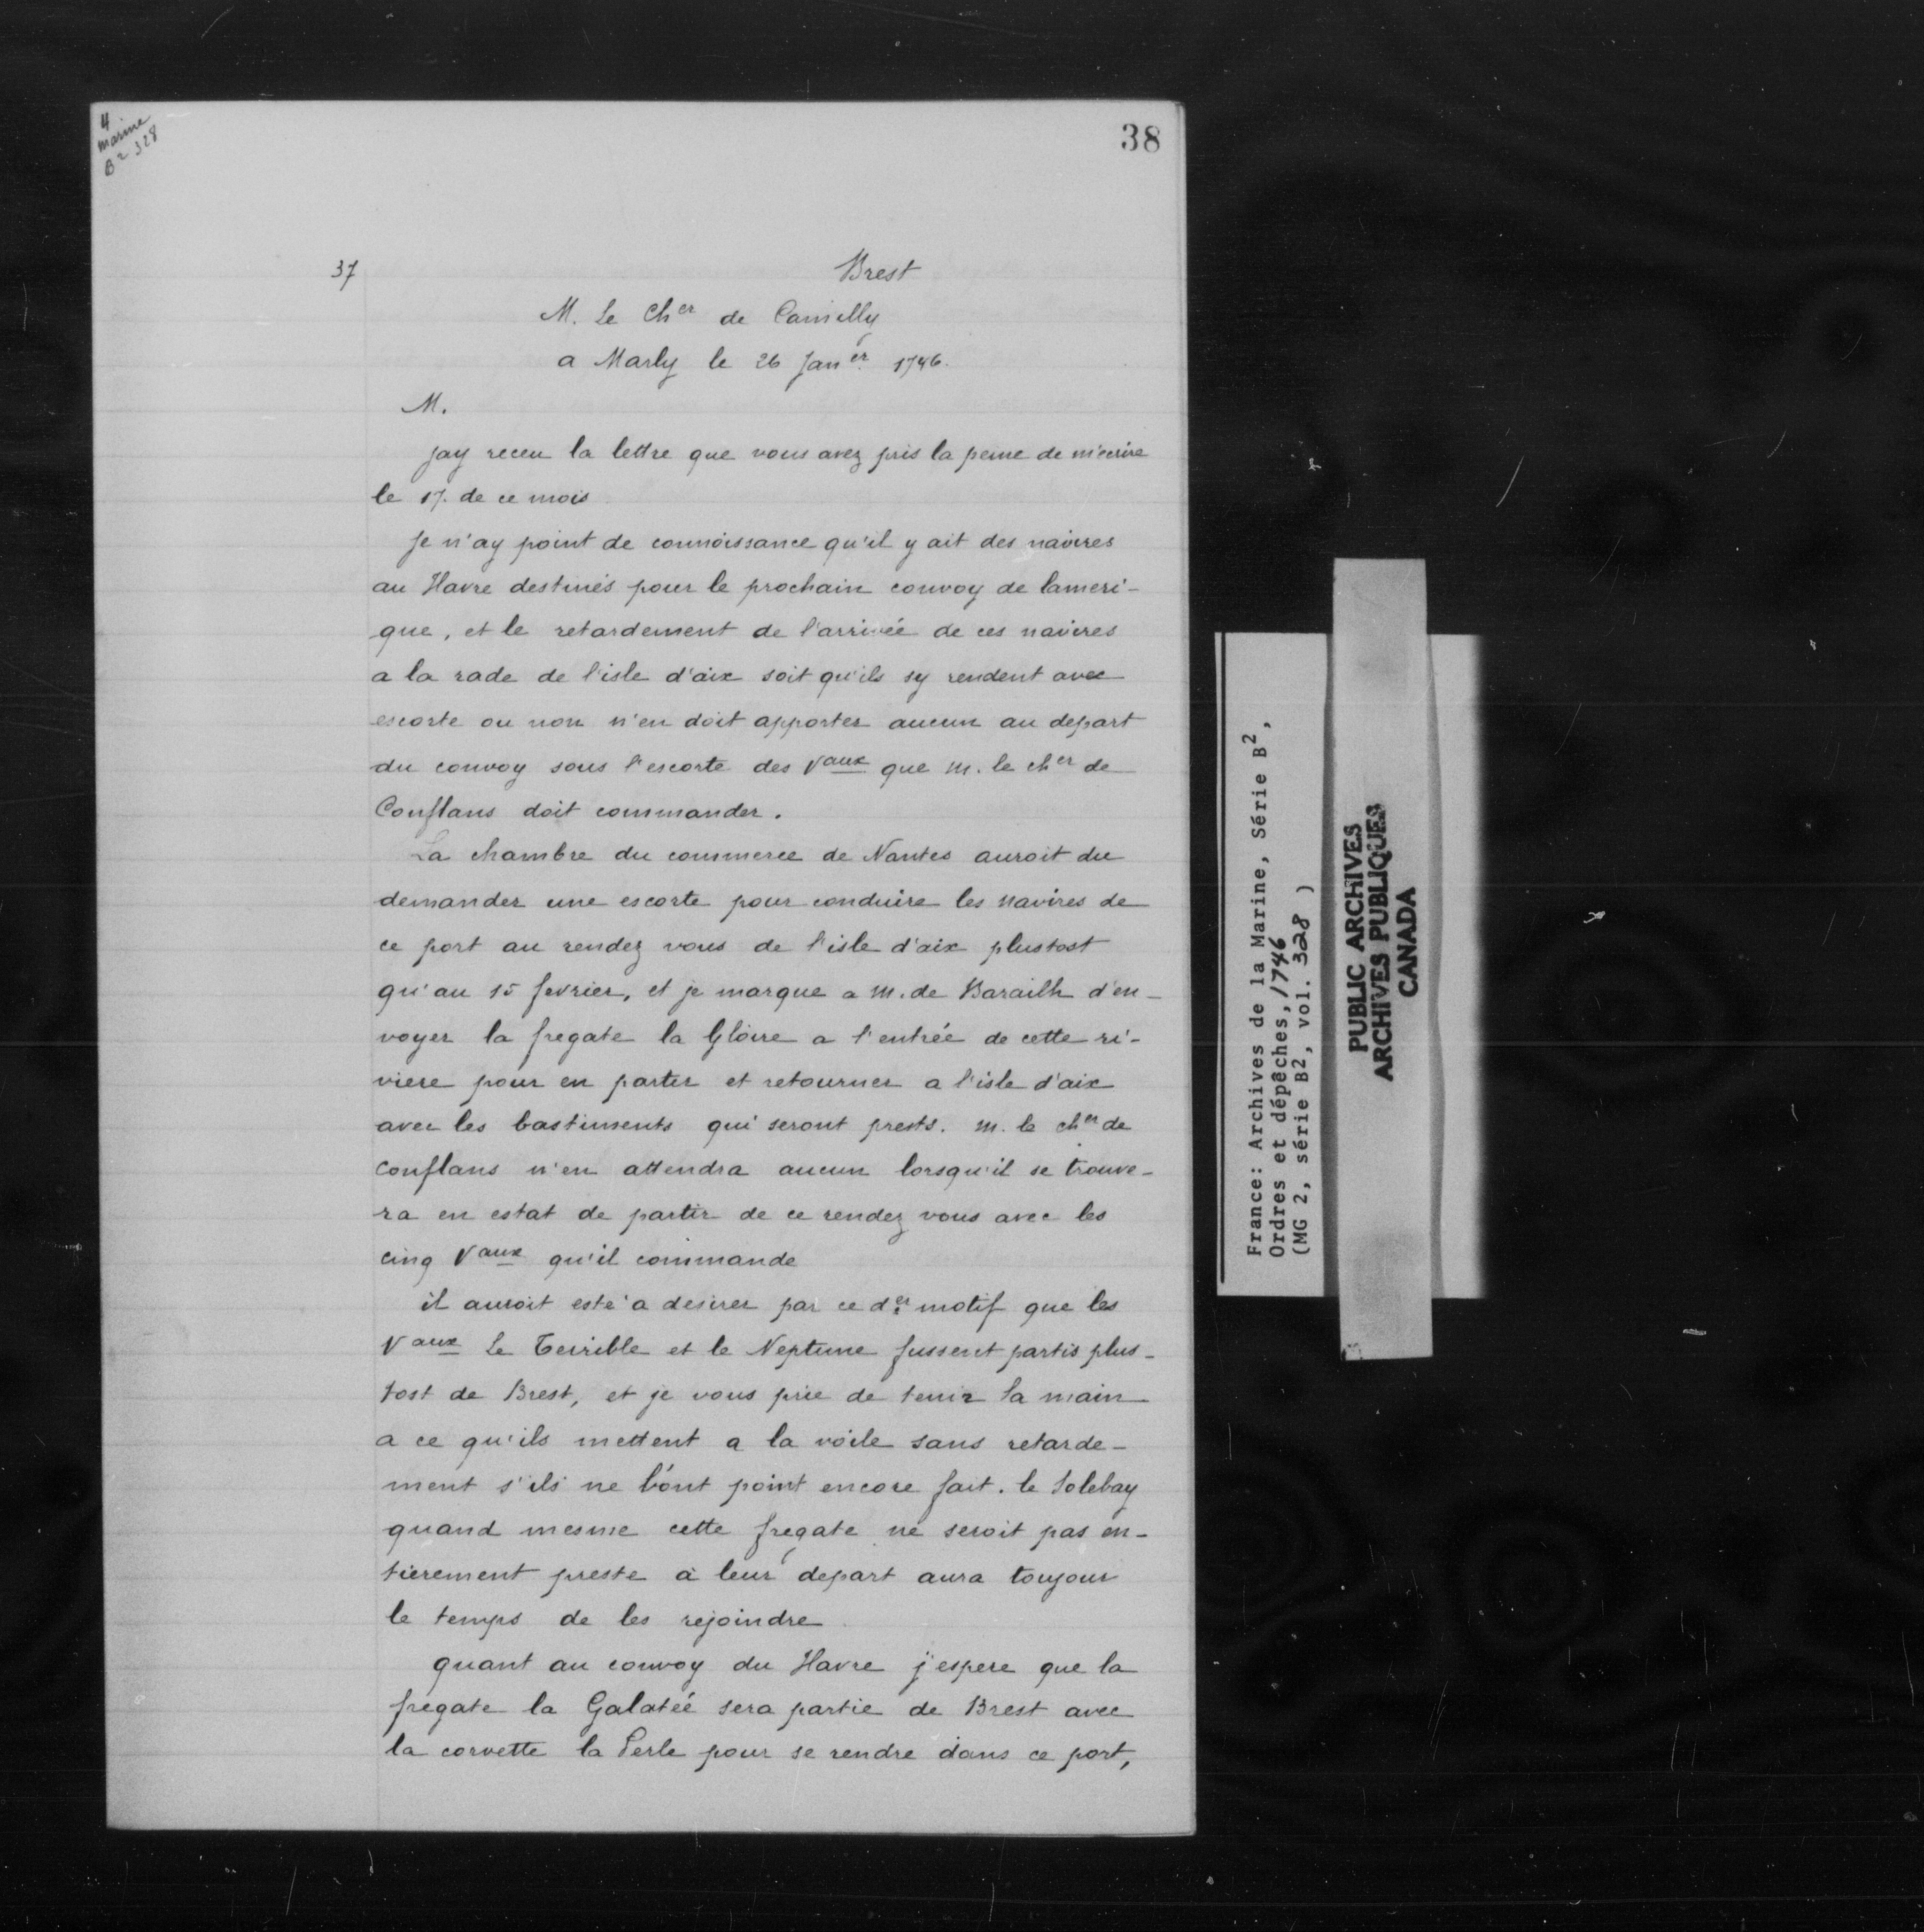 4
marine
B2 328
38
37
Brest
M. Le Cher de Camilly
a Marly le 26 Janer. 1746.
M.
Jay receu la lettre que vous avez pris la peine de m'ecrire
le 17. de ce mois
Je n'ay point de connoissance qu'il y ait des navires
au Havre destinés pour le prochain convoy de lameri-
que, et le retardement de l'arrivée de ces navires
a la rade de l'isle d'aix soit qu'ils sy rendent avec
escorte ou non n'en doit apporter aucun au depart
du convoy sous l'escorte des Vaux que M. le cher de
Conflans doit commander.
La chambre du commerce de Nantes auroit du
demander une escorte pour conduire les navires de
ce port au rendez vous de l'isle d'aix plustost
qu'au 15 fevrier, et je marque a M. de Barailh d'en-
voyer la fregate la Gloire a l'entrée de cette ri-
viere pour en partir et retourner a l'isle d'aix
avec les bastiments qui seront prests. M. le cher de
Conflans n'en attendra aucun lorsqu'il se trouve-
ra en estat de partir de ce rendez vous avec les
cinq Vaux qu'il commande
il auroit esté a desirer par ce der motif que les
Vaux Le Terrible et le Neptune fussent partis plus-
tost de Brest, et je vous prie de tenir la main
a ce qu'ils mettent a la voile sans retarde-
ment s'ils ne l'ont point encore fait. le Solebay
quand mesme cette fregate ne seroit pas en-
tierement preste à leur depart aura toujour
le temps de les rejoindre
quant au convoy du Havre j'espere que la
fregate la Galatéé sera partie de Brest avec
la corvette la Perle pour se rendre dans ce port,
France: Archives de la Marine, Série B2,
Ordres et dépêches, 1746
(MG 2, série B2, vol. 328 )
PUBLIC ARCHIVES
ARCHIVES PUBLIQUES
CANADA